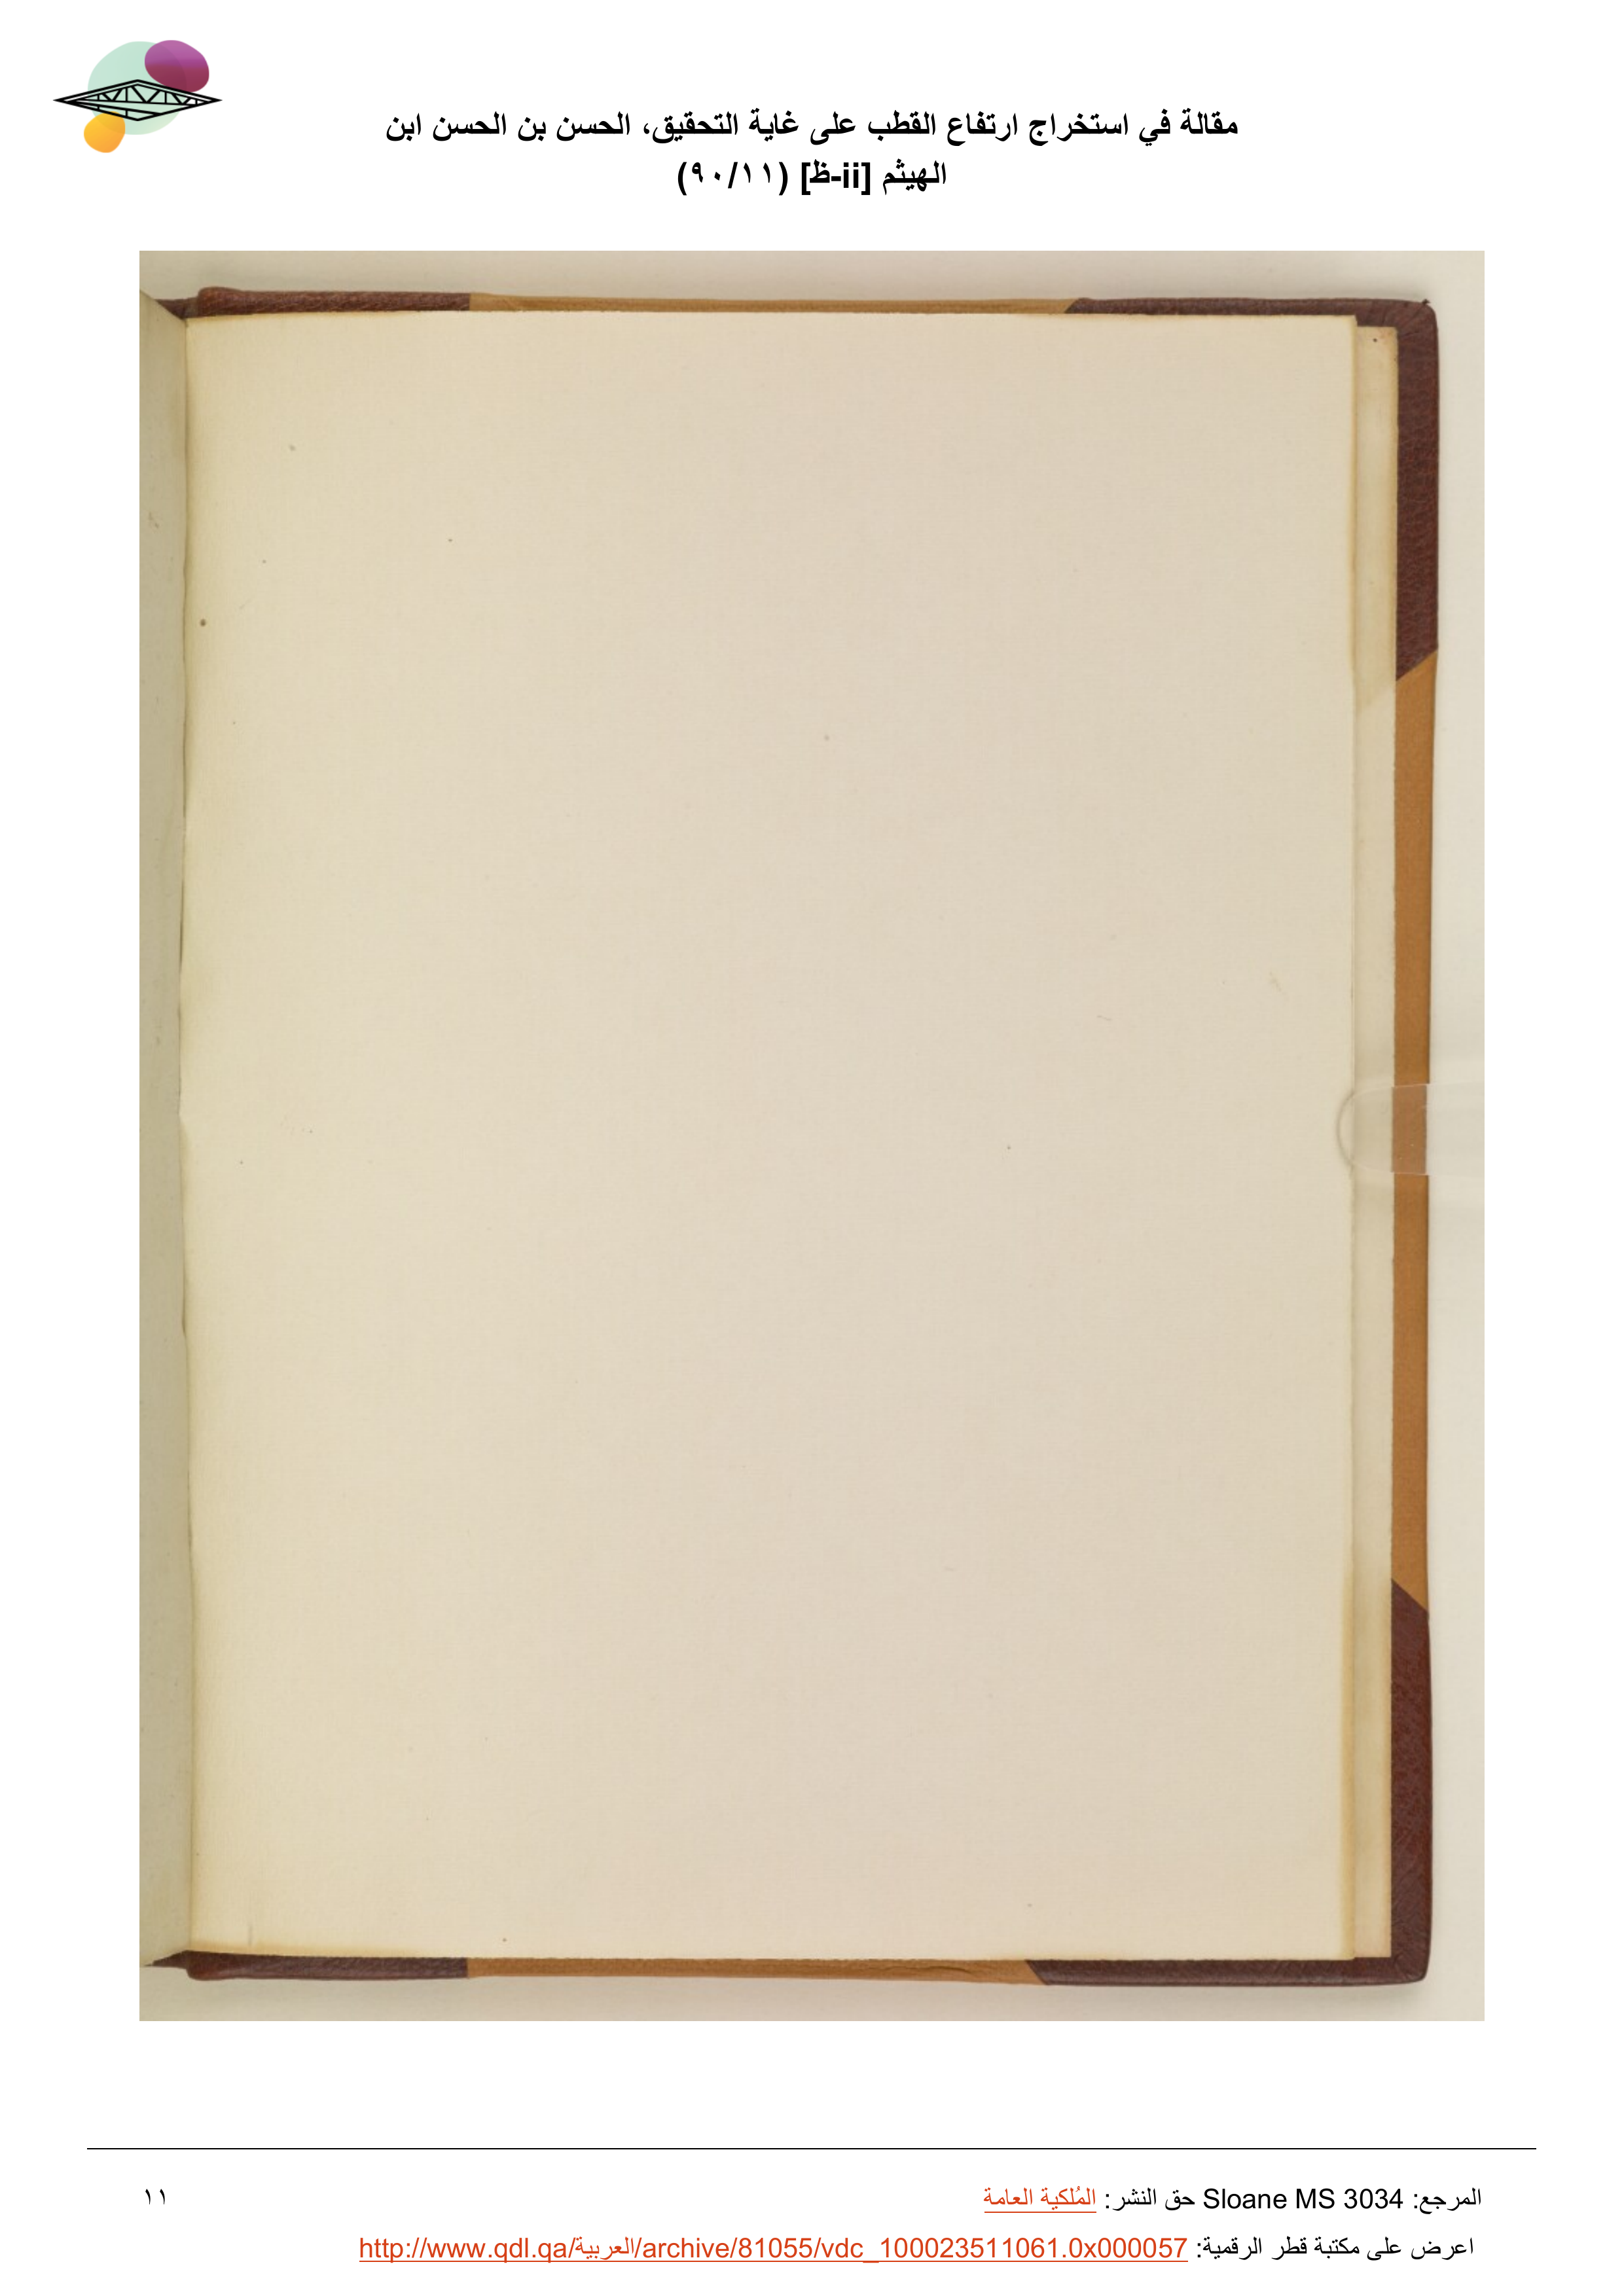 مقالة في استخراج ارتفاع القطب على غاية التحقيق، الحسن بن الحسن ابن
الهيثم [ii-ظ] (٩٠/١١)
المرجع: Sloane MS 3034 حق النشر: المُلكية العامة
١١
اعرض على مكتبة قطر الرقمية: http://www.qdl.qa/العربية/archive/81055/vdc_100023511061.0x000057